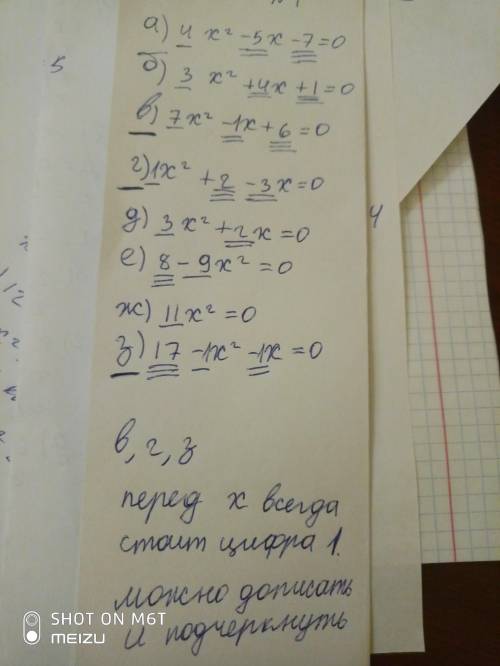 а) 4x² -5x -7=0
5
б) 3x² +4x +1=0
в) 7x² -1x + 6=0
г) 1x² + 2 -3x=0
4
д) 3x² + 2x =0
е) 8 - 9x² =0
ж) 11x² =0
з) 17 -1x² -1x =0
в, г, з
перед x всегда
стоит цифра 1.
можно дописать
и подчеркнуть
SHOT ON M6T
MEIZU